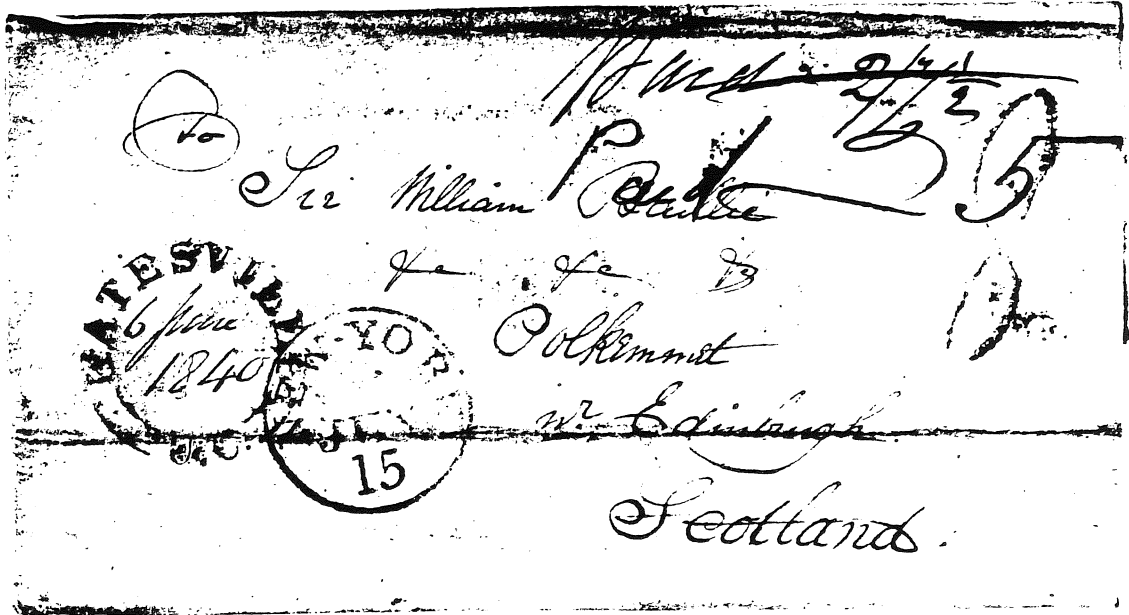 2/7 1/2
Paid 5
To
Sir William Baillie
&c &c &
Polkemmet
nr. Edinburgh
Scotland.
BATESVILLE
6 June
1840
NEW YOR
15